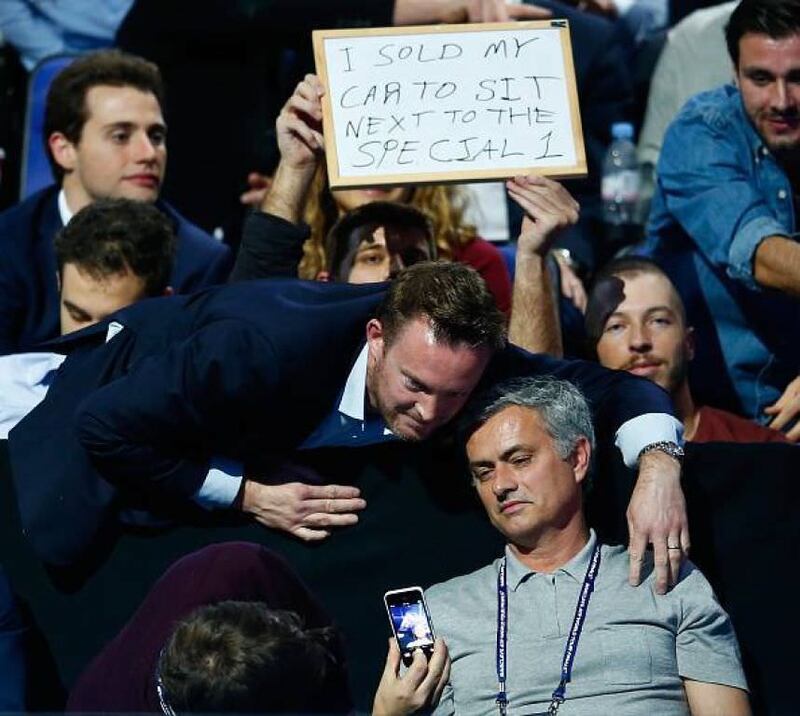 I SOLD MY
CAR TO SIT
NEXT TO THE
SPECIAL 1